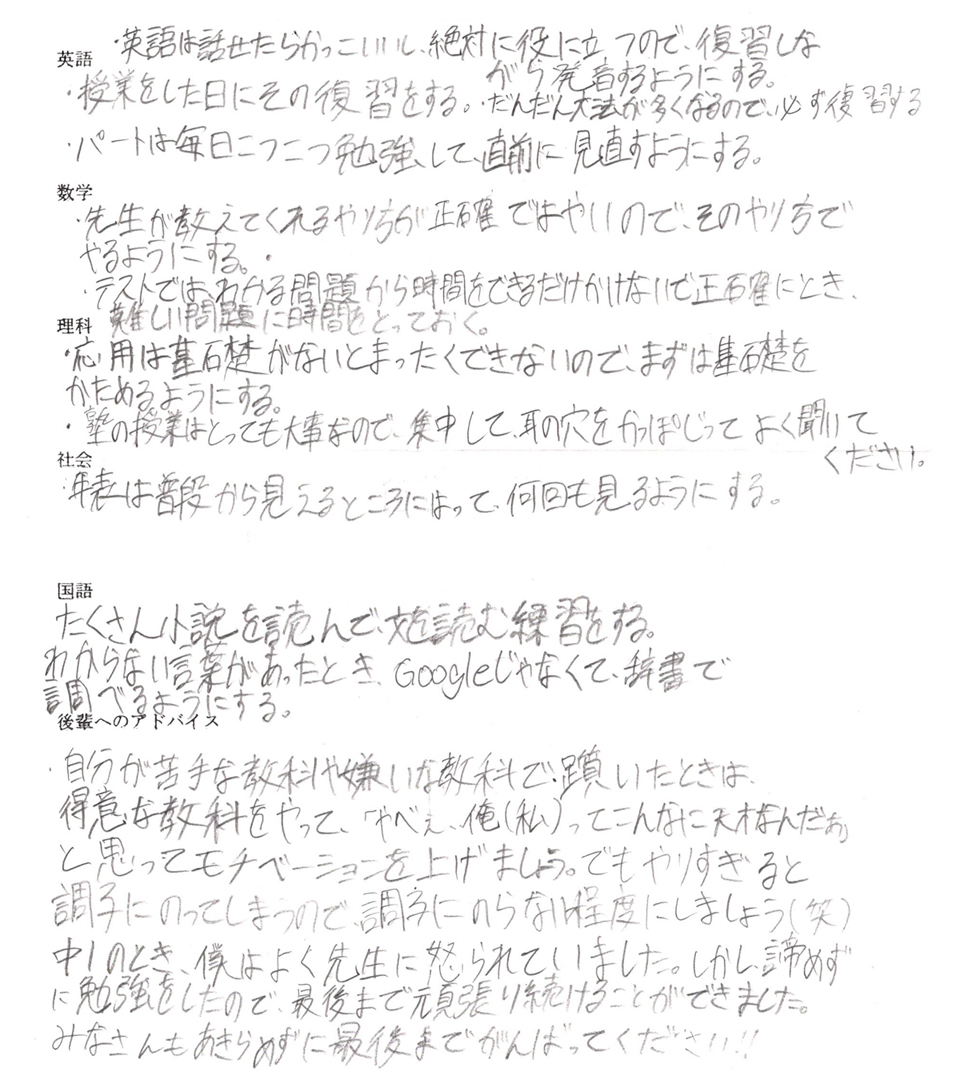 英語
・英語は話せたらかっこいいし、絶対に役に立つので、復習しな
がら発音するようにする。
・授業をした日にその復習をする。・だんだん文法が多くなるので、必ず復習する
・パートは毎日コツコツ勉強して、直前に見直すようにする。
数学
・先生が教えてくれるやり方が正確ではやいので、そのやり方で
やるようにする。・
・テストでは、わかる問題から時間をできるだけかけないで正確にとき、
難しい問題に時間をとっておく。
理科
・応用は基礎がないとまったくできないので、まずは基礎を
かためるようにする。
・塾の授業はとっても大事なので、集中して、耳の穴をかっぽじってよく聞いて
ください。
社会
・年表は普段から見えるところにはって、何回も見るようにする。
国語
たくさん小説を読んで、文を読む練習をする。
わからない言葉があったとき、Googleじゃなくて、辞書で
調べるようにする。
後輩へのアドバイス
・自分が苦手な教科や嫌いな教科で、躓いたときは、
得意な教科をやって、「やべぇ、俺(私)ってこんなに天才なんだぁ」
と思ってモチベーションを上げましょう。でもやりすぎると
調子にのってしまうので、調子にのらない程度にしましょう(笑)
中1のとき、僕はよく先生に怒られていました。しかし、諦めず
に勉強をしたので、最後まで頑張り続けることができました。
みなさんもあきらめずに最後までがんばってください!!